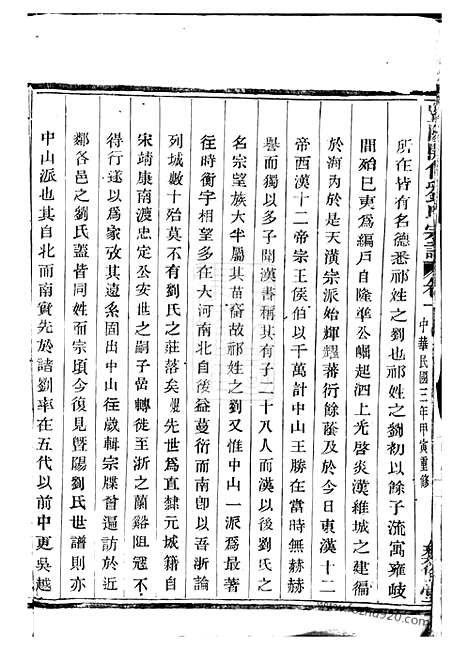 暨陽開化劉氏宗譜 卷一 中華民國三年甲寅重修
所在皆有名德悉祁姓之劉也祁姓之劉初以餘子流寓雍岐
間殆已更為編戶自隆準公崛起泗上光啓炎漢維城之建徧
於海內於是天潢宗派始輝耀蕃衍餘蔭及於今日東漢十二
帝西漢十二帝宗王侯伯以千萬計中山王勝在當時赫赫
譽而獨以多子聞漢書稱其有子二十八人而漢以後劉氏之
名宗望族大半屬其苗裔故祁姓之劉又惟中山一派為最著
往時衡宇相望多在大河南北自後益蔓衍而南卽以吾浙論
列城數十殆莫不有劉氏之莊落矣 先世為直隸元城籍自
宋靖康南渡忠定公安世之嗣子嵒轉徙至浙之蘭谿阻寇不
得行遂以為家攷其遠系固出中山往歲輯宗牒曾遍訪於近
鄰各邑之劉氏蓋皆同姓而宗頃今復見暨陽劉氏世譜則亦
中山派也其自北而南實先於諸劉率在五代以前中更吳越
www.kozhao920.com